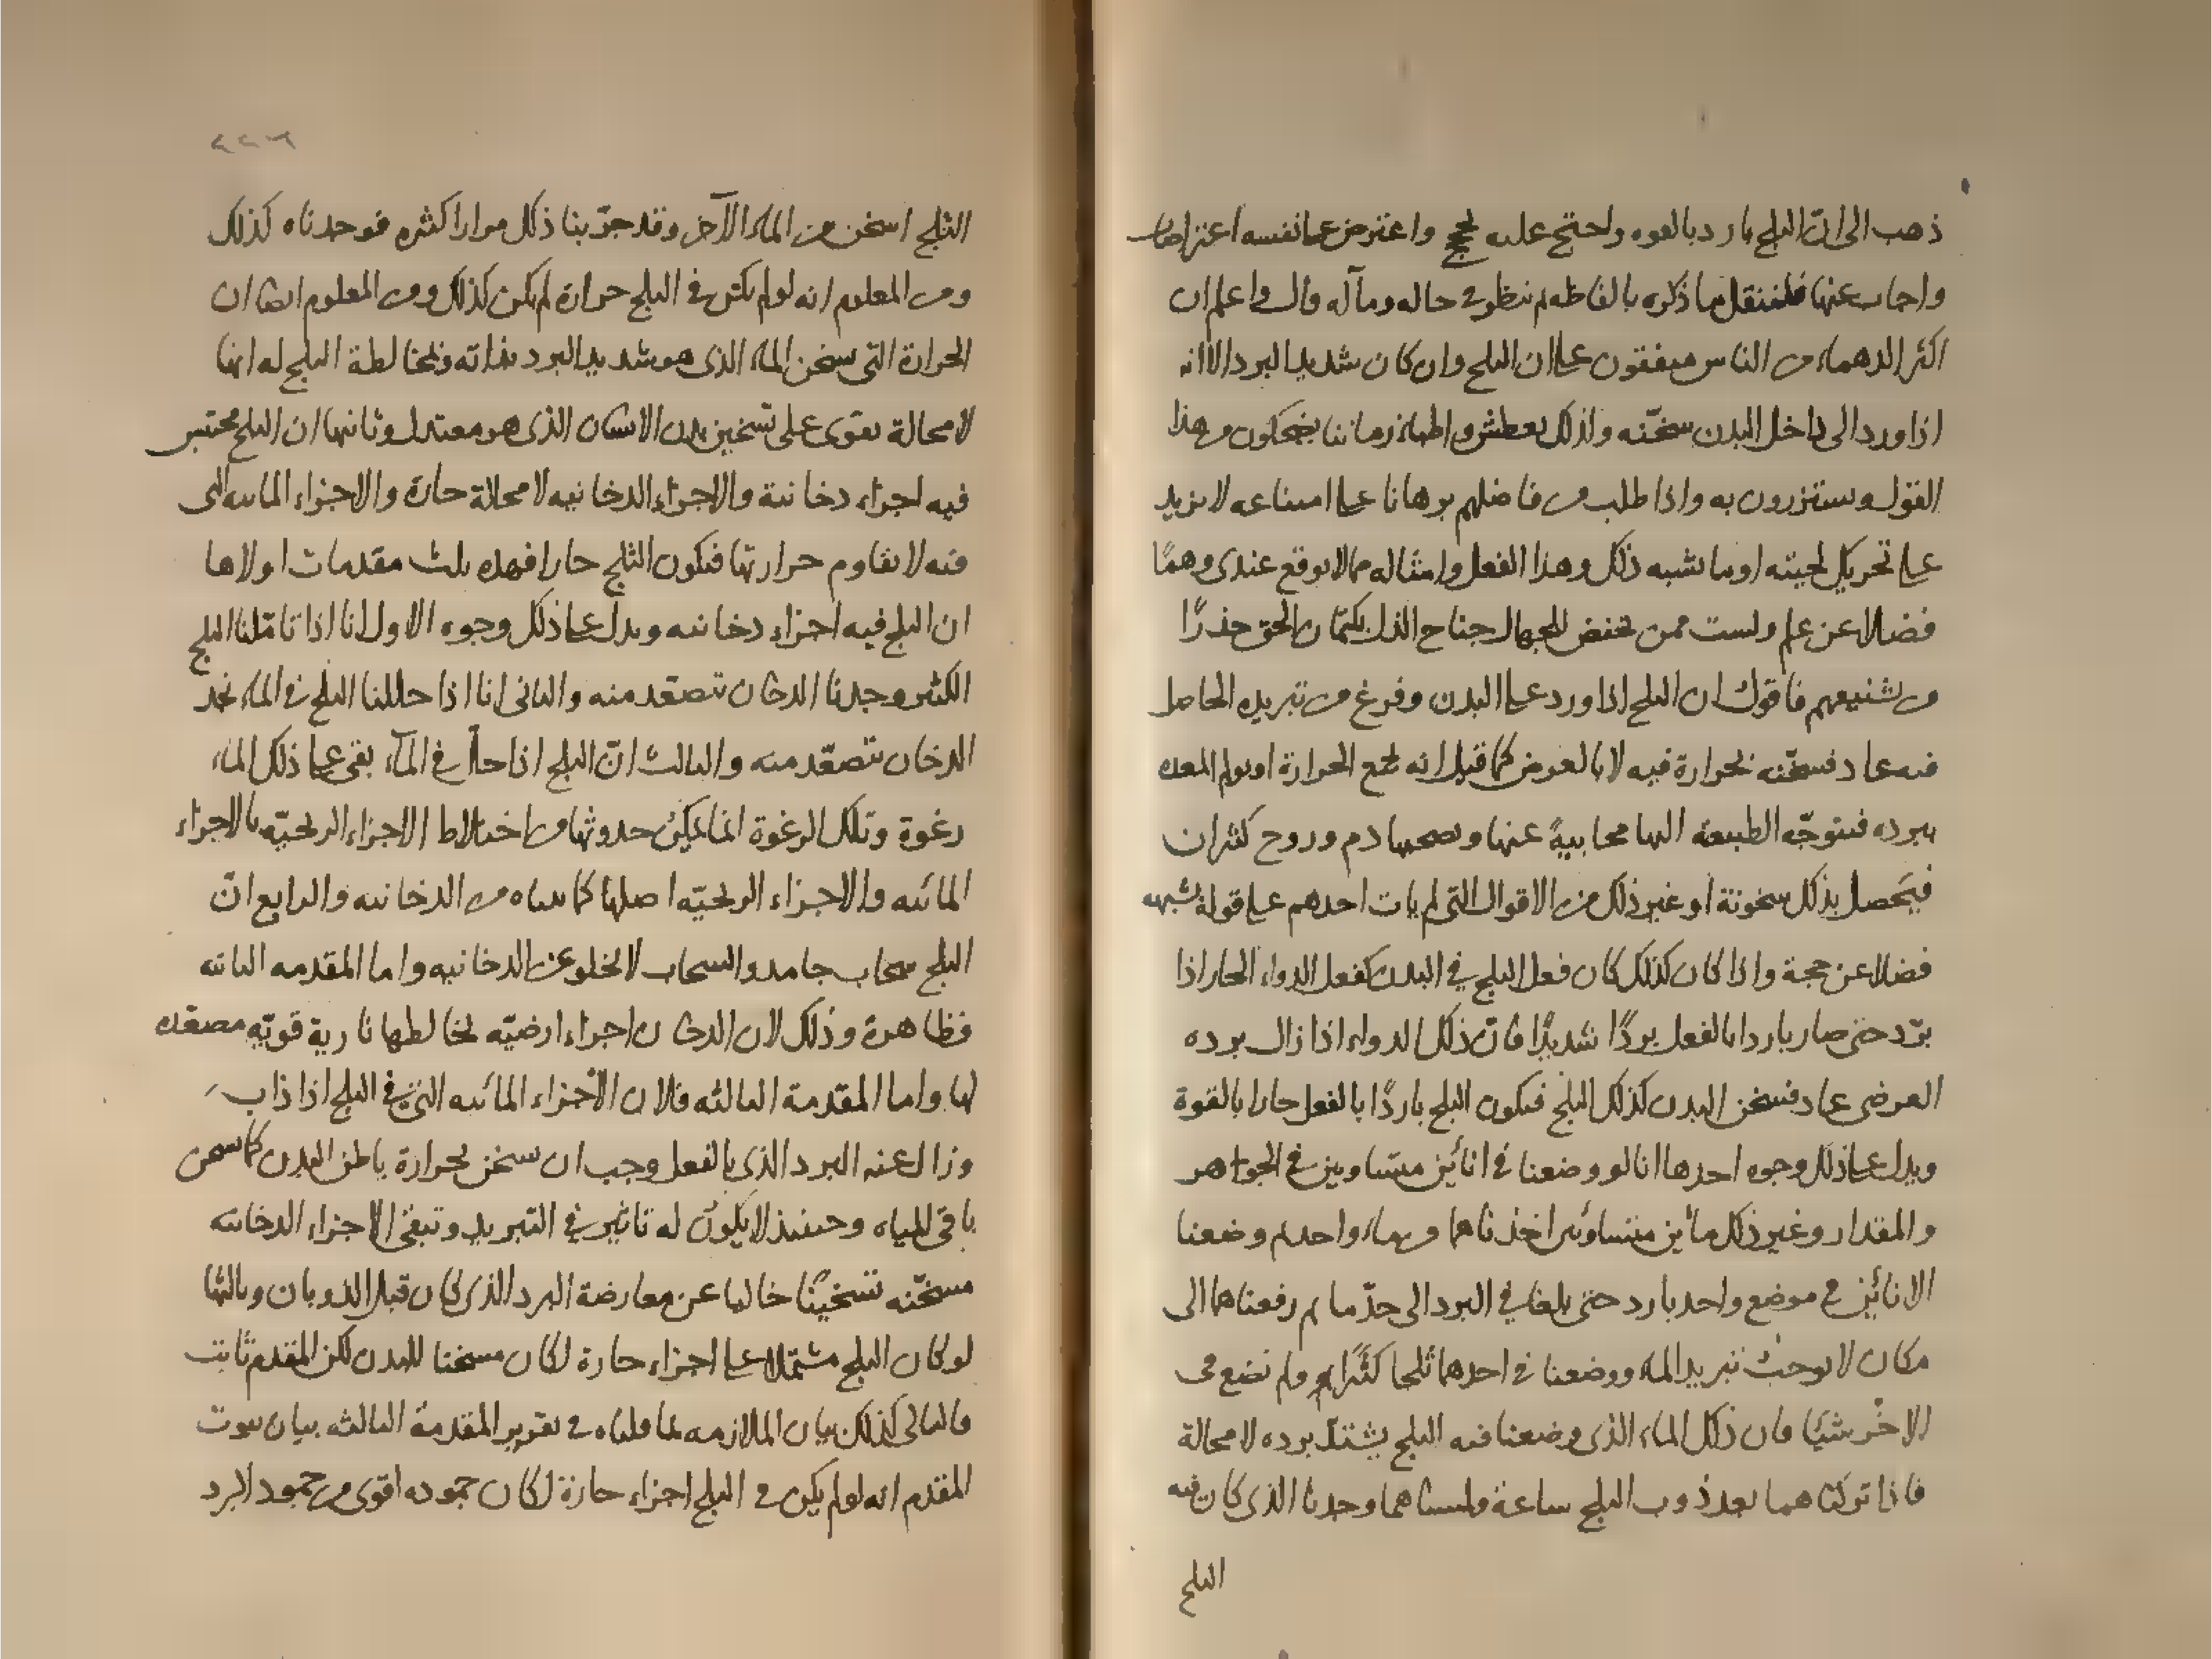 ذهب الى ان الثلج بارد بالقوه واحتج عليه بحجج واعترض على نفسه اعتراضات
واجاب عنها فلننقل ما ذكره بالفاظه ثم ننظر في حاله ومآله قال واعلم ان
اكثر الدهماء من الناس متفقون على ان الثلج وان كان شديد البرد الا انه
اذا ورد الى داخل البدن سخنّه ولذلك يعطش واطباء زماننا يضحكون من هذا
القول ويستهزرون به واذا طلب من فاضلهم برهانا على امتناعه لا يزيد
على تحريك لحيته او ما يشبه ذلك وهذا الفعل وامثاله مما لا يوقع عندى وهمًا
فضلا عن علم ولست ممن يخفض للجهال جناح الذل بكتمان الحق حذرًا
من شنيعهم فاقول ان الثلج اذا ورد على البدن وفرغ من تبريده الحاصل
فيه عاد فسخّنه بحرارة فيه لا بالعرض كما قيل انه يجمع الحرارة او يولم المعده
ببرده فيتوجّه الطبيعه اليها محابيةً عنها ويصحبها دم وروح كثيران
فيَحصل بذلك سخونة او غير ذلك من الاقوال التى لم يات احدهم على قوله بشبهه
فضلا عن حجة واذا كان كذلك كان فعل الثلج في البدن كفعل الدواء الحار اذا
برّد حتى صار باردا بالفعل بردًا شديدًا فانّ ذلك الدواء اذا زال برده
العرضى عاد فسخن البدن كذلك الثلج فيكون الثلج باردًا بالفعل حارا بالقوة
ويدل على ذلك وجوه احدها انا لو وضعنا في انائين متساويين في الجواهر
والمقدار وغير ذلك مائين متساويين اخذناهما من ماء واحد ثم وضعنا
الانائين في موضع واحد بارد حتى بلغا في البرد الى حدّ ما ثم رفعناهما الى
مكان لا يوجب تبريد الماء ووضعنا في احدهما ثلجا كثيرا ولم نضع في
الاخر شيئا فان ذلك الماء الذى وضعنا فيه الثلج يشتدّ برده لا محالة
فاذا تركناهما بعد ذوب الثلج ساعة ولمسناهما وجدنا الذى كان فيه
الثلج
الثلج اسخن من الماء الآخر وقد جرّبنا ذلك مرارا كثيره فوجدناه كذلك
ومن المعلوم انه لو لم يكن في الثلج حرارة لم يكن كذلك ومن المعلوم ايضا ان
الحرارة التى سخن الماء الذى هو شديد البرد بذاته ولمخالطة الثلج له انها
لا محالة يقوى على تسخين بدن الانسان الذى هو معتدل وثانيها ان الثلج محتبس
فيه اجزاء دخانية والاجزاء الدخانيه لا محالة حارة والاجزاء المائيه التى
فيه لا يقاوم حرارتها فيكون الثلج حارا فهذه ثلث مقدمات اولاها
ان الثلج فيه اجزاء دخانيه ويدل على ذلك وجوه الاول انا اذا تامّلنا الثلج
الكثير وجدنا الدخان تتصعّد منه والثانى انا اذا حللنا الثلج في الماء نجد
الدخان تتصعّد منه والثالث انّ الثلج اذا حلّ في المآء بقى على ذلك الماء
رغوة وتلك الرغوة انما يمكن حدوثها من اختلاط الاجزاء الريحيّه بالاجزاء
المائيه والاجزاء الريحيّه اصلها كما بيناه من الدخانيه والرابع انّ
الثلج سحاب جامد والسحاب لا يخلو عن الدخانيه واما المقدمه الثانيه
فظاهرة وذلك لان الدخان اجزاء ارضيّه يخالطها نارية قويّه مصعّده
لها واما المقدمة الثالثه فلان الأجزاء المائيه التى في الثلج اذا ذاب
وزال عنه البرد الذى بالفعل وجب ان سخن بحرارة باطن البدن كما سخن
باقى المياه وحينئذ لا يكون له تاثير في التبريد وتبقى الاجزاء الدخانيه
مسخّنه تسخينًا خاليا عن معارضة البرد الذى كان قبل الذوبان وثالثها
لو كان الثلج مشتملا على اجزاء حارة لكان مسخنا للبدن لكن المقدم ثابت
فالتالى كذلك بيان الملازمه لما قلناه في تقرير المقدمة الثالثه بيان ثبوت
المقدم انه لو لم يكن في الثلج اجزاء حارة لكان جموده اقوى من جمود البرد